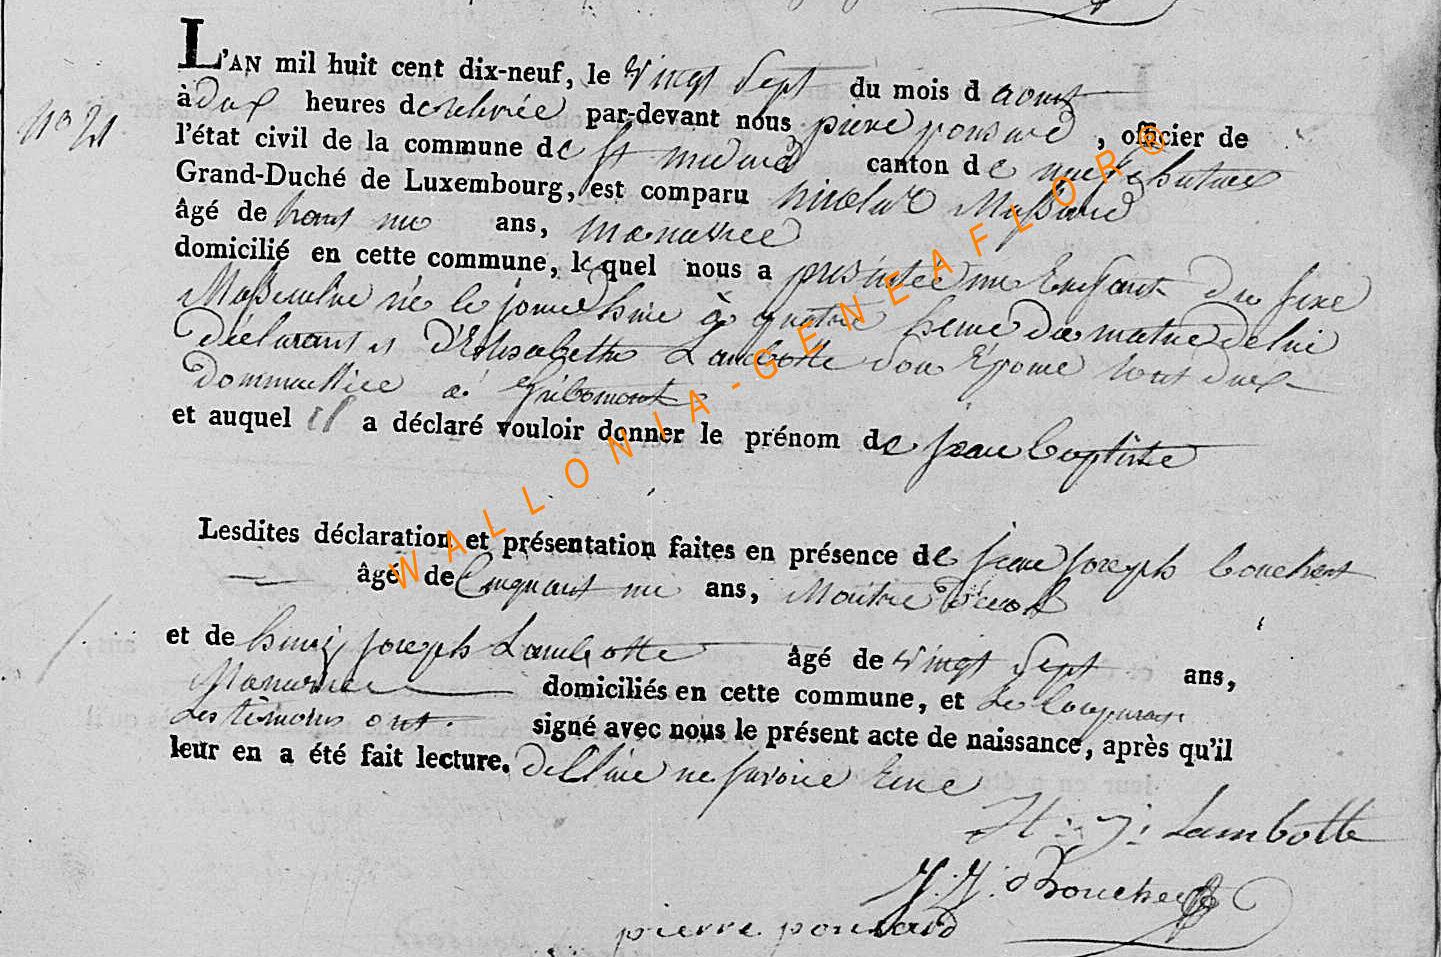 L'AN mil huit cent dix-neuf, le vingt Sept du mois d aoust
N° 21
à deux heures de relevée par-devant nous pierre ponsard, officier de
l'état civil de la commune de St medard canton de neufchateau
Grand-Duché de Luxembourg, est comparu nicolas Massard
âgé de trent un ans, manuvree
domicilié en cette commune, lequel nous a presentée un Enfant du sexe
Masculin né le jourdhui à quatre heure du matin de lui
déclarant et d'Elisabethe Lambotte son Epouse tout deux
dommicilier a Gribomont
et auquel il a déclaré vouloir donner le prénom de jean baptiste
Lesdites déclaration et présentation faites en présence de jean joseph bouchert
âgé de Cinquant un ans, Maitre
et de henry joseph Lambotte âgé de vingt Sept ans,
Manuvrier domiciliés en cette commune, et
Les témoins ont signé avec nous le présent acte de naissance, après qu'il
leur en a été fait lecture. ne savoire
H: J: Lambotte
J. J. Bouchert
pierre ponsard
WALLONIA-GENEAFLOR®